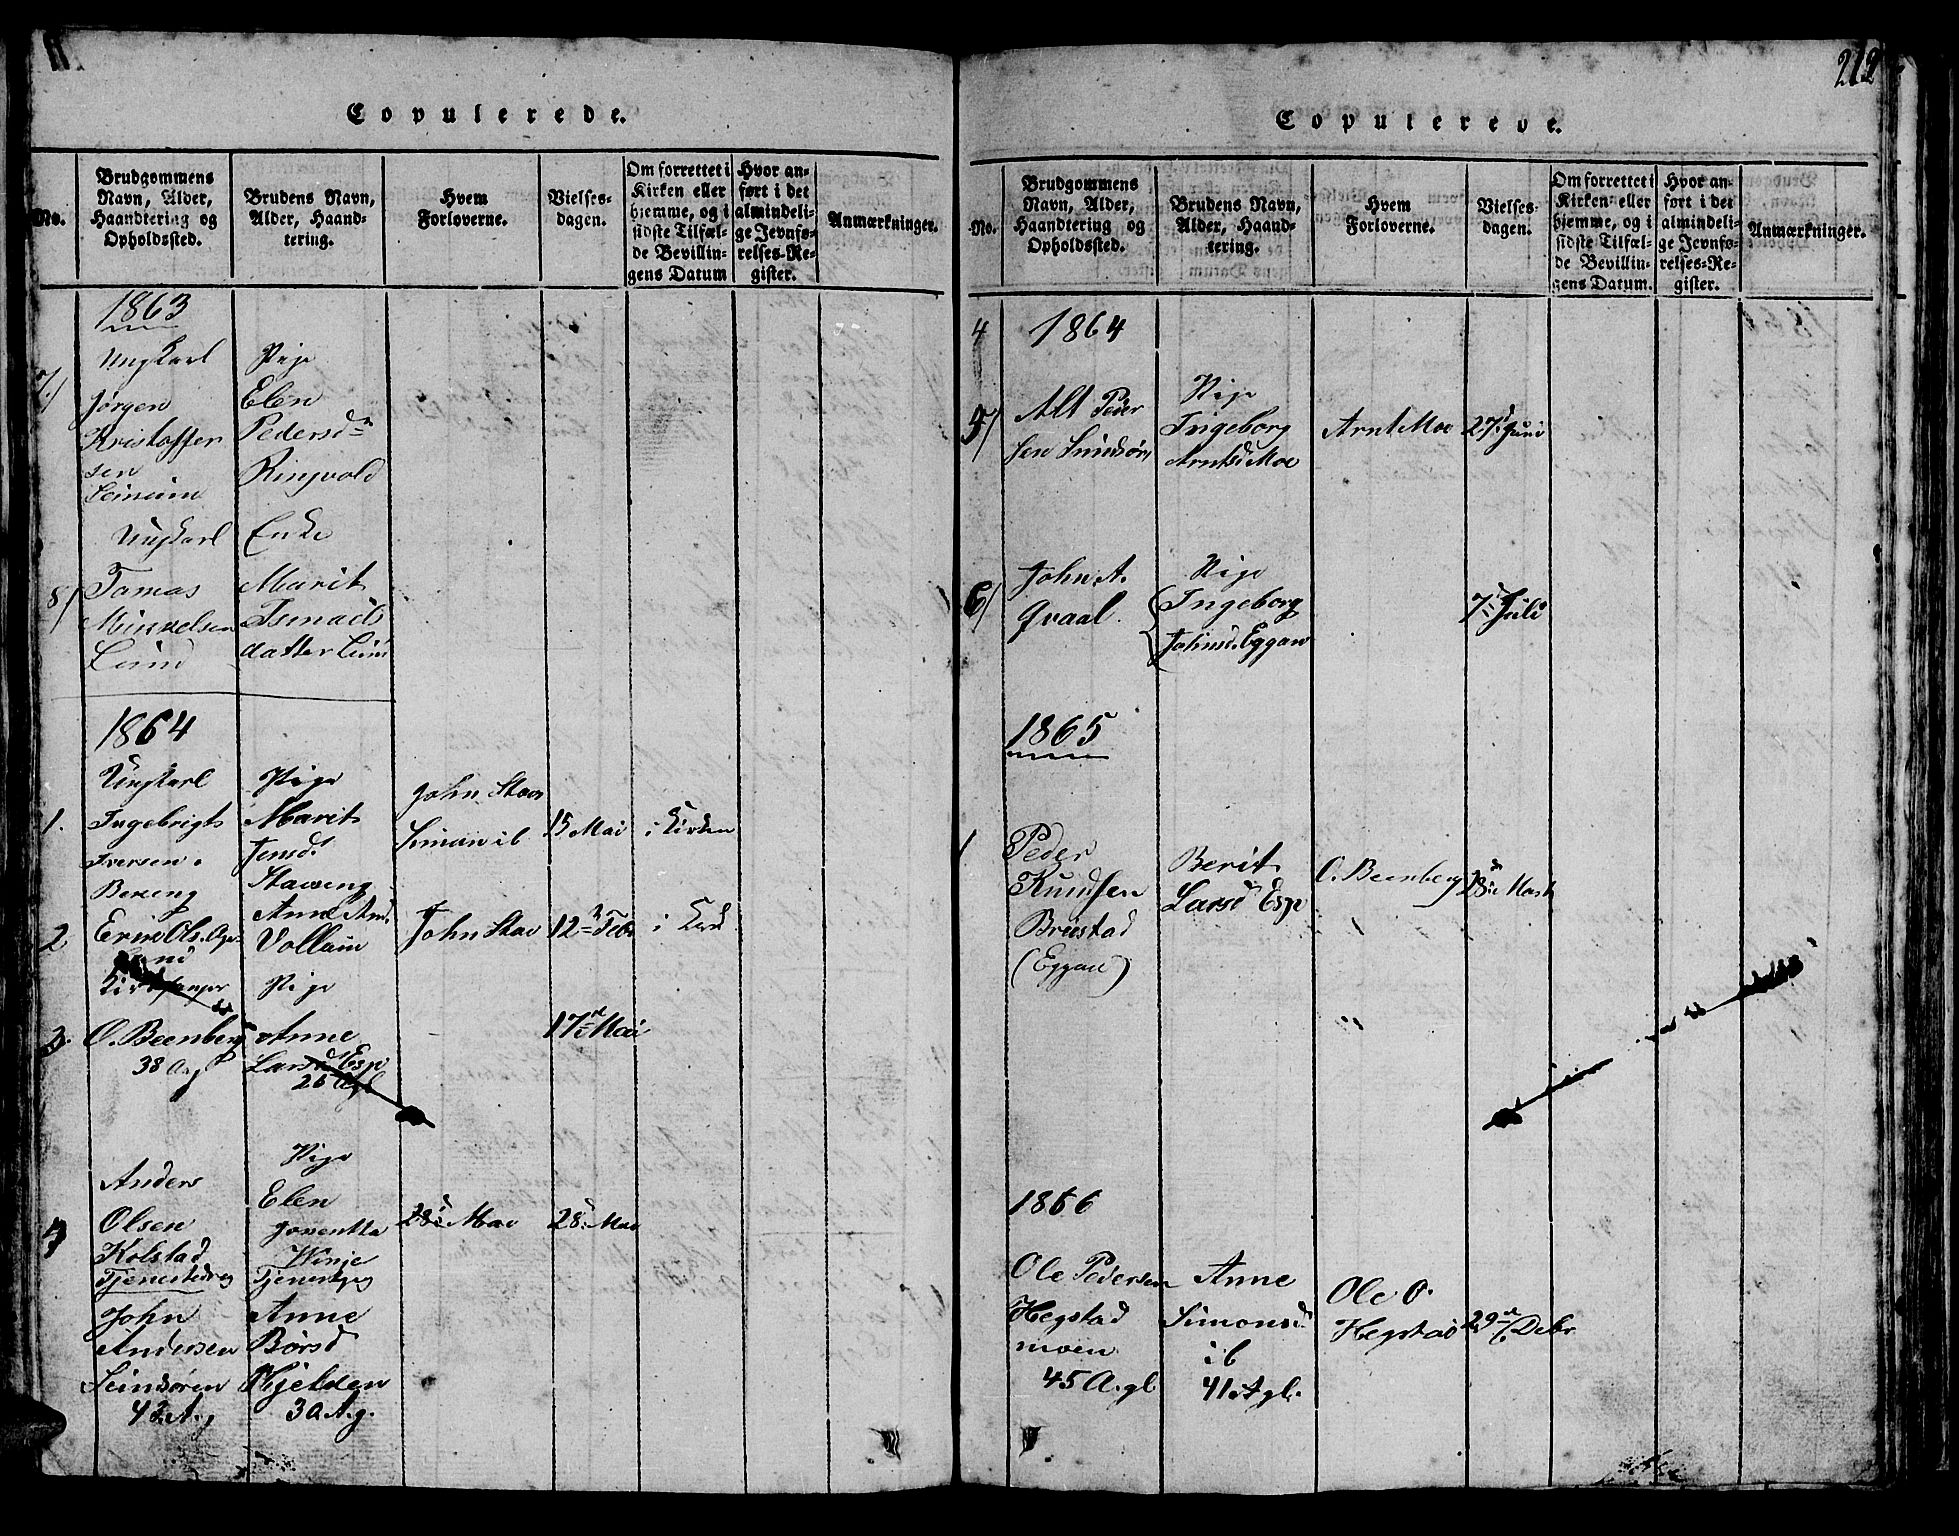 212
Copulerede.
No.
Brudgommens
Navn, Alder,
Haandtering og
Opholdssted.
Brudens Navn,
Alder, Haand-
tering.
Hvem
Forloverne.
Vielses-
dagen.
Om forrettet i
Kirken eller
hjemme, og i
sidste Tilfæl-
de Bevillin-
gens Datum
Hvor an-
ført i det
almindeli-
ge Jevnfø-
relses-Re-
gister.
Anmærkninger.
1863
7)
Ungkarl
Jørgen
Kristoffer
sen
Pige
Elen
Pedersd
Ringvold
8)
Ungkarl
Tamas
Mikkelsen
Lund
Enke
Marit
Ismaels
datter Lund
1864
1.
Ungkarl
Ingebrigt
Iversen
Bereng
Pige
Marit
Jensd.
Staveng
John Stav
Simon ib
15 Mai
i Kirken
2
Erik Ols.
Anne And.
Vollum
John Stav
12 Feb
i Kirk
3.
Kirkesanger
O. Beenberg
38 A. g
Pige
Anne
Larsd Espe
26 A gl
17 Mai
4
Anders
Olsen
Kolstad
Tjenestedreng
Pige
Elen
Winje
Tjenestpig
28 Mai
28 Mai
John
Andersen
42 A. g
Anne
Børsd
Hjelden
30 A. g.
Copulerede.
No.
Brudgommens
Navn, Alder,
Haandtering og
Opholdssted.
Brudens Navn,
Alder, Haand-
tering.
Hvem
Forloverne.
Vielses-
dagen.
Om forrettet i
Kirken eller
hjemme, og i
sidste Tilfæl-
de Bevillin-
gens Datum.
Hvor an-
ført i det
almindeli-
ge Jevnfø-
relses-Re-
gister.
Anmærkninger.
4
1864
5)
Alt Peder
sen
Pige
Ingeborg
Arntsd Moe
Arnt Moe
27 Juni
6)
John A.
Qvaal
Pige
Ingeborg
Johnsd. Eggan
7 Juli
1865
1
Peder
Kundsen
Brustad
(Eggan)
Berit
Larsd Espe
O. Beenberg
28 Mart
1866
Ole Pedersen
Hegstad
moen
45 A. gl
Anne
Simonsd
ib
41 A gl.
Ole O.
Hegstad
29 Debr